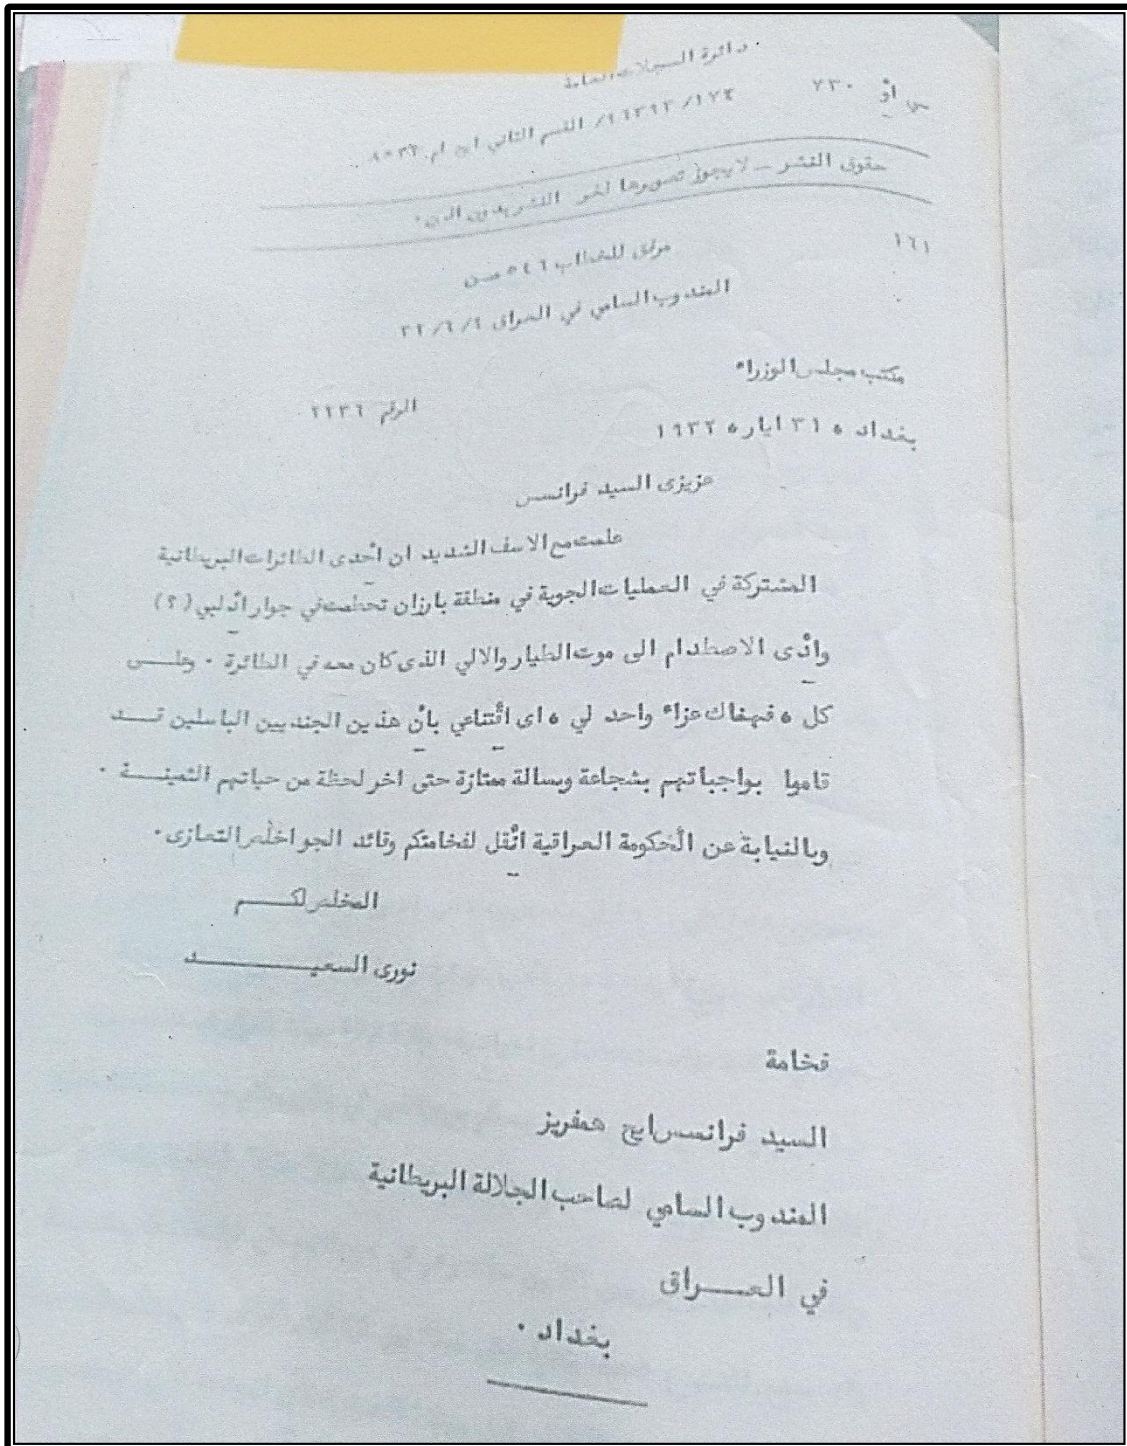 دائرة السجلات العامة
سي او ٧٣٠
١٧٤/ ٩٦٣٩٣/ القسم الثاني اين ام.
حقوق النشر – لايجوز تصويرها لغير
١٦١
مرفق للخطاب ٥٤٦ من
المندوب السامي في العراق ٣٢/٦/٩
مكتب مجلس الوزراء
الرقم ٢٢٣٦
بغداد ٥ ٣١ ايار ٥ ١٩٣٢
عزيزى السيد فرانسس
علمت مع الاسف الشديد ان احدى الطائرات البريطانية
المشتركة في العمليات الجوية في منطقة بارزان تحطمت في جوار ادلبي (؟)
وادى الاصطدام الى موت الطيار والالي الذى كان معه في الطائرة . وعلى
كل ٥ فهناك عزاء واحد لي ٥ اى اقتناعي بان هذين الجنديين الباسلين قد
قاموا بواجباتهم بشجاعة وبسالة ممتازة حتى اخر لحظة من حياتهم الثمينة .
وبالنيابة عن الحكومة العراقية انقل لفخامتكم وقائد الجو اخلص التعازى .
المخلص لكم
نورى السعيد
فخامة
السيد فرانسس ايج همفريز
المندوب السامي لصاحب الجلالة البريطانية
في العراق
بغداد .